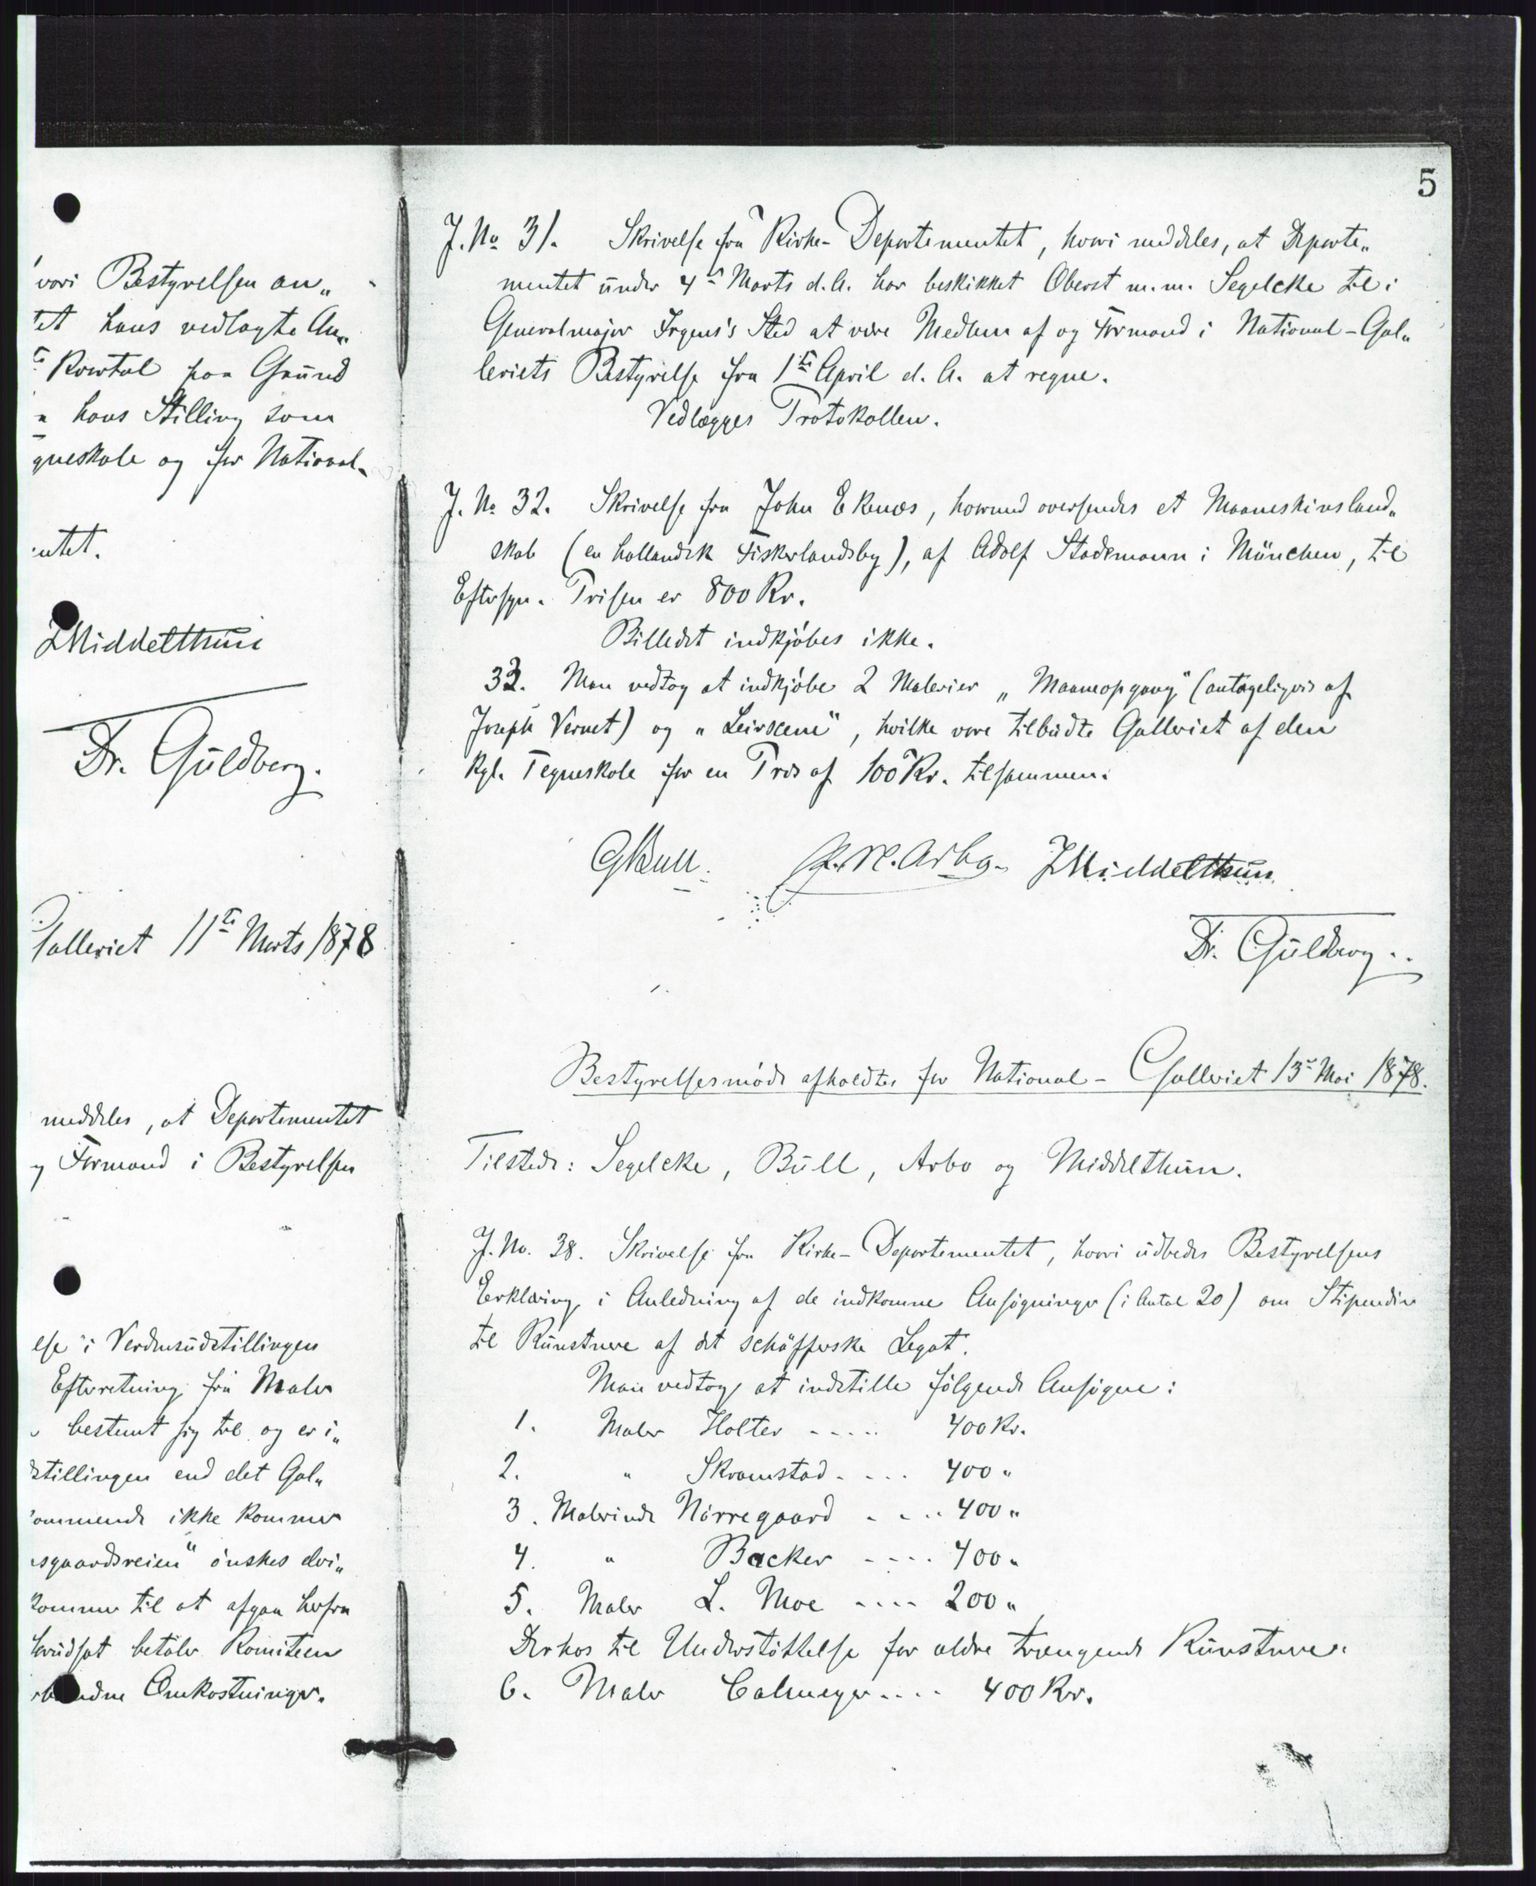 vori Bestyrelsen an„
tet hans vedlagte An„
Kvartal paa Grund
hans Stilling som
gneskole og for National„
entet.
JMiddelthun
Dr. Guldberg.
Galleriet 11te Marts 1878
meddeles, at Departementet
g Formand i Bestyrelsen
else i Verdensudstillingen
Efterretning fra Maler
bestemt sig til og er i„
dstillingen end det Gal„
kommende ikke kommer
sgaardsreien" ønskes dri„
kommer til at afgaa herfra
betaler Komiteen
bundne Omkostninger.
5
J. No 31. Skrivelse fra Kirke-Departementet, hvori meddeles, at Departe„
mentet under 4de Marts d. A. har beskikket Oberst m.m. Segelcke til i
Generalmajor Irgens's Sted at være Medlem af og Formand i National-Gal„
leriets Bestyrelse fra 1te April d. A. at regne.
Vedlægges Protokollen.
J. No 32. Skrivelse fra John Ekenæs, hvormed oversendes et Maaneskinsland„
skab (en hollandsk Fiskerlandsby), af Adolf Stademann i München, til
Eftersyn. Prisen er 800 Kr.
Billedet indkjøbes ikke.
33. Man vedtog at indkjøbe 2 Malerier „Maaneopgang" (antageligvis af
Joseph Vernet) og „Leirscene", hvilke vare tilbudte Galleriet af den
kgl. Tegneskole for en Pris af 100 Kr. tilsammen.
GBull. P.N.Arbo. JMiddelthun
Dr. Guldberg..
Bestyrelsesmøde afholdtes for National-Galleriet 13de Mai 1878.
Tilstede: Segelcke, Bull, Arbo og Middelthun.
J. No. 38. Skrivelse fra Kirke-Departementet, hvori udbedes Bestyrelsens
Erklæring i Anledning af de indkomne Ansøgninger (i Antal 20) om Stipendier
til Kunstnere af det schäfferske Legat.
Man vedtog at indstille følgende Ansøgere:
1. Maler Holter ..... 400 Kr.
2. „ Skramstad .... 400 „
3. Malerinde Nørregaard .... 400 „
4. „ Backer .... 400 „
5. Maler L. Moe .... 200 „
Derhos til Understøttelse for ældre trængende Kunstnere.
6. Maler Calmeyer .... 400 Kr.